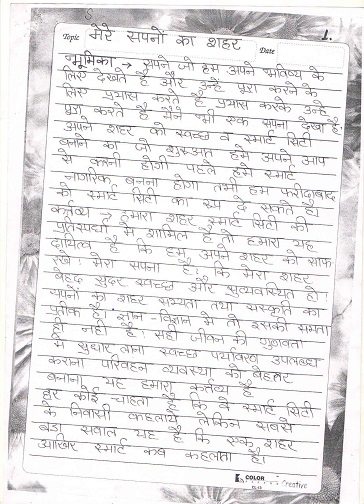 Topic मेरे सपनों का शहर Date 1.
भूमिका → सपने जो हम अपने भविष्य के
लिए देखते है और उन्हें पूरा करने के
लिए प्रयास करते है प्रयास करके उन्हें
पूरा करते है मैने भी एक सपना देखा है
अपने शहर को स्वच्छ व स्मार्ट सिटी
बनाने का जो शुरूआत हमें अपने आप
से करनी होगी पहले हमे स्मार्ट
नागरिक बनना होगा तभी हम फरीदाबाद
को स्मार्ट सिटी का रूप दे सकते है।
कर्तव्य → हमारा शहर स्मार्ट सिटी की
प्रतिस्पर्धा में शामिल है तो हमारा यह
दायित्व है कि हम अपने शहर को साफ
रखे। मेरा सपना है कि मेरा शहर
बेहद सुंदर स्वच्छ और सुव्यवस्थित हो।
सपनो का शहर सभ्यता तथा संस्कृति का
प्रतीक है। ज्ञान-विज्ञान मे तो इसकी समता
ही नही है। सही जीवन की गुणवता
मे सुधार लाना स्वच्छ पर्यावरण उपलब्ध
कराना परिवहन व्यवस्था को बेहतर
बनाना यह हमारा कर्तव्य है
हर कोई चाहता है कि वे स्मार्ट सिटी
के निवासी कहलाये लेकिन सबसे
बडा सवाल यह है कि एक शहर
आखिर स्मार्ट कब कहलाता है।
COLOR Creative